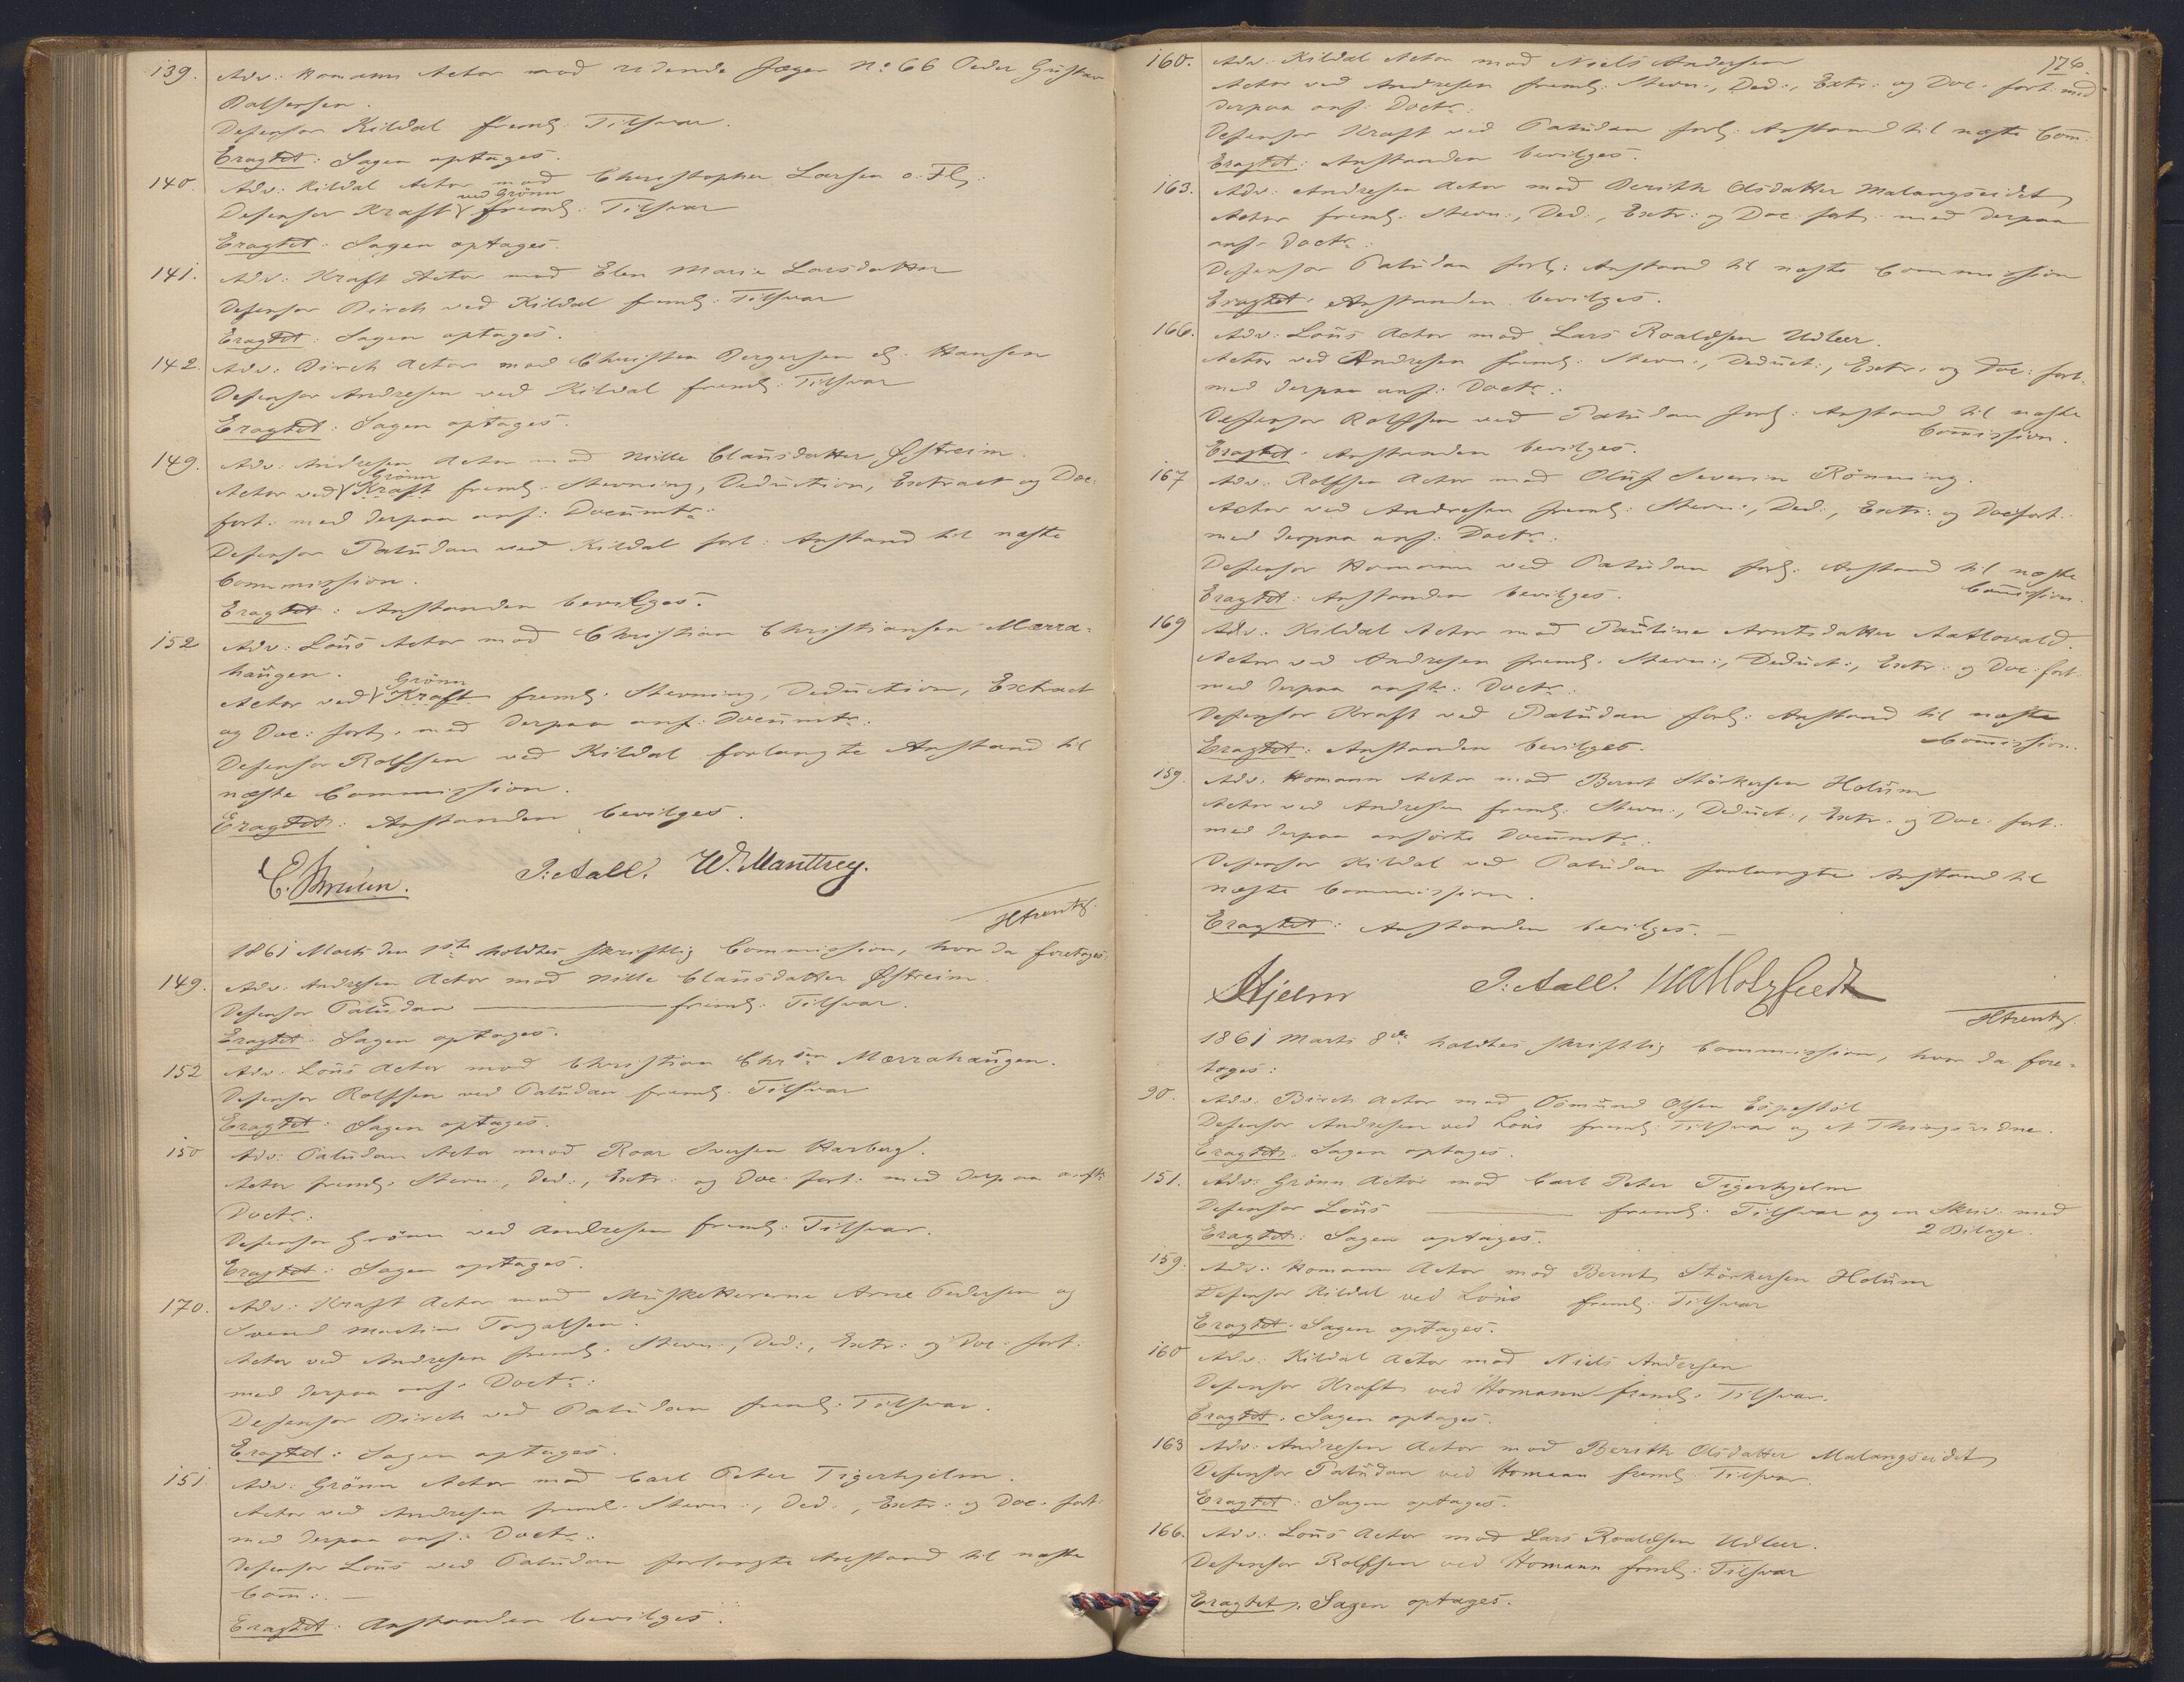 139. Adv: Homann Actor mod ridende Jæger No 66 Peder Gustav
Balsersen.
Defensor Kildal freml: Tilsvar.
Eragtet: Sagen optages.
140. Adv: Kildal Actor mod Christopher Larsen o: Fl:
ved Grönn
Defensor Kraft freml: Tilsvar
Eragtet: Sagen optages.
141. Adv: Kraft Actor mod Elen Marie Larsdatter
Defensor Birch ved Kildal freml: Tilsvar
Eragtet: Sagen optages.
142. Adv: Birch Actor mod Christen Bergersen el. Hansen
Defensor Andresen ved Kildal freml: Tilsvar
Eragtet: Sagen optages.
149. Adv: Andresen Actor mod Nille Clausdatter Østreim.
Grönn
Actor ved Kraft freml: Stevning, Deduction, Extract og Doc:
fort: med derpaa anf: Documtr:
Defensor Paludan ved Kildal forl: Anstand til næste
Commission.
Eragtet: Anstanden bevilges.
152 Adv: Lous Actor mod Christian Christiansen Mærra-
haugen.
Grönn
Actor ved Kraft freml: Stevning, Deduction, Extract
og Doc: fort: med derpaa anf: Documtr:
Defensor Rolfsen ved Kildal forlangte Anstand til
næste Commission.
Eragtet: Anstanden bevilges.
P: Aall.
1861 Marts den 1ste holdtes skriftlig Commission, hvor da foretoges:
149. Adv: Andresen Actor mod Nille Clausdatter Østreim
Defensor Paludan freml: Tilsvar.
Eragtet: Sagen optages.
152 Adv: Lous Actor mod Christian Chrsen Mærrahaugen.
Defensor Rolfsen ved Paludan freml: Tilsvar
Eragtet: Sagen optages.
150 Adv: Paludan Actor mod Roar Iversen Harberg.
Actor freml: Stevn:, Ded:, Extr: og Doc: fort: med derpaa anfte
Doctr:
Defensor Grönn ved Andresen freml: Tilsvar.
Eragtet: Sagen optages.
170. Adv: Kraft Actor mod Muskettererne Arne Pedersen og
Svend Martin Torgalsen.
Actor ved Andresen freml: Stevn:, Ded:, Extr: og Doc: fort:
med derpaa anf: Doctr:
Defensor Birch ved Paludan freml: Tilsvar.
Eragtet: Sagen optages.
151 Adv: Grönn Actor mod Carl Peter Tigerhjelm.
Actor ved Andresen freml: Stevn:, Ded:, Extr: og Doc: fort:
med derpaa anf: Doctr:
Defensor Lous ved Paludan forlangte Anstand til næste
Com:.
Eragtet: Anstanden bevilges.
174.
160. Adv: Kildal Actor mod Niels Andersen
Actor ved Andresen freml: Stevn:, Ded:, Extr: og Doc: fort: med
derpaa anf: Doctr:
Defensor Kraft ved Paludan forl: Anstand til næste Com:
Eragtet: Anstanden bevilges.
163. Adv: Andresen Actor mod Berith Olsdatter Malangseidet
Actor freml: Stevn:, Ded:, Extr: og Doc: fort: med derpaa
anf: Doctr:
Defensor Paludan forl: Anstand til næste Commission
Eragtet: Anstanden bevilges.
166. Adv: Lous Actor mod Lars Roaldsen Udleer.
Actor ved Andresen freml: Stevn:, Deduct:, Extr: og Doc: fort:
med derpaa anf: Doctr:
Defensor Rolfsen ved Paludan forl: Anstand til næste
Commission.
Eragtet: Anstanden bevilges.
167 Adv: Rolfsen Actor mod Oluf Severin Rönning.
Actor ved Andresen freml: Stevn:, Ded:, Extr: og Doc: fort:
med derpaa anf: Doctr:
Defensor Homann ved Paludan forl: Anstand til næste
Commission.
Eragtet: Anstanden bevilges.
169 Adv: Kildal Actor mod Pauline Arntsdatter
Actor ved Andresen freml: Stevn:, Deduct:, Extr: og Doc: fort:
med derpaa anfte: Doctr:
Defensor Kraft ved Paludan forl: Anstand til næste
Commission.
Eragtet: Anstanden bevilges.
159. Adv: Homann Actor mod Bernt Störkersen Holum
Actor ved Andresen freml: Stevn:, Deduct:, Extr: og Doc: fort:
med derpaa anførte Documtr:
Defensor Kildal ved Paludan forlangte Anstand til
næste Commission.
Eragtet: Anstanden bevilges.
Hjelm P: Aall.
1861 Marts 8de holdtes skriftlig Commission, hvor da fore-
toges:
90. Adv: Birch Actor mod Osmund Olsen Espestöl
Defensor Andresen ved Lous freml: Tilsvar og et Thingsvidne.
Eragtet: Sagen optages.
151. Adv: Grönn Actor mod Carl Peter Tigerhjelm
Defensor Lous freml: Tilsvar og en Skriv: med
2 Bilage.
Eragtet: Sagen optages.
159. Adv: Homann Actor mod Bernt Störkersen Holum
Defensor Kildal ved Lous freml: Tilsvar
Eragtet: Sagen optages.
160 Adv: Kildal Actor mod Niels Andersen
Defensor Kraft ved Homann freml: Tilsvar.
Eragtet: Sagen optages.
163 Adv: Andresen Actor mod Berith Olsdatter Malangseidet
Defensor Paludan ved Homann freml: Tilsvar.
Eragtet: Sagen optages.
166. Adv: Lous Actor mod Lars Roaldsen Udleer.
Defensor Rolfsen ved Homann freml: Tilsvar
Eragtet: Sagen optages.